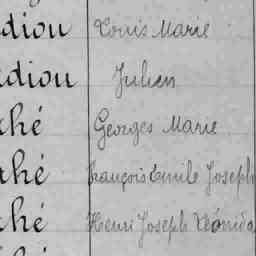 dion Louis Marie
dion Julien
ché Georges Marie
ché François Emile Joseph
ché Henri Joseph Léonida